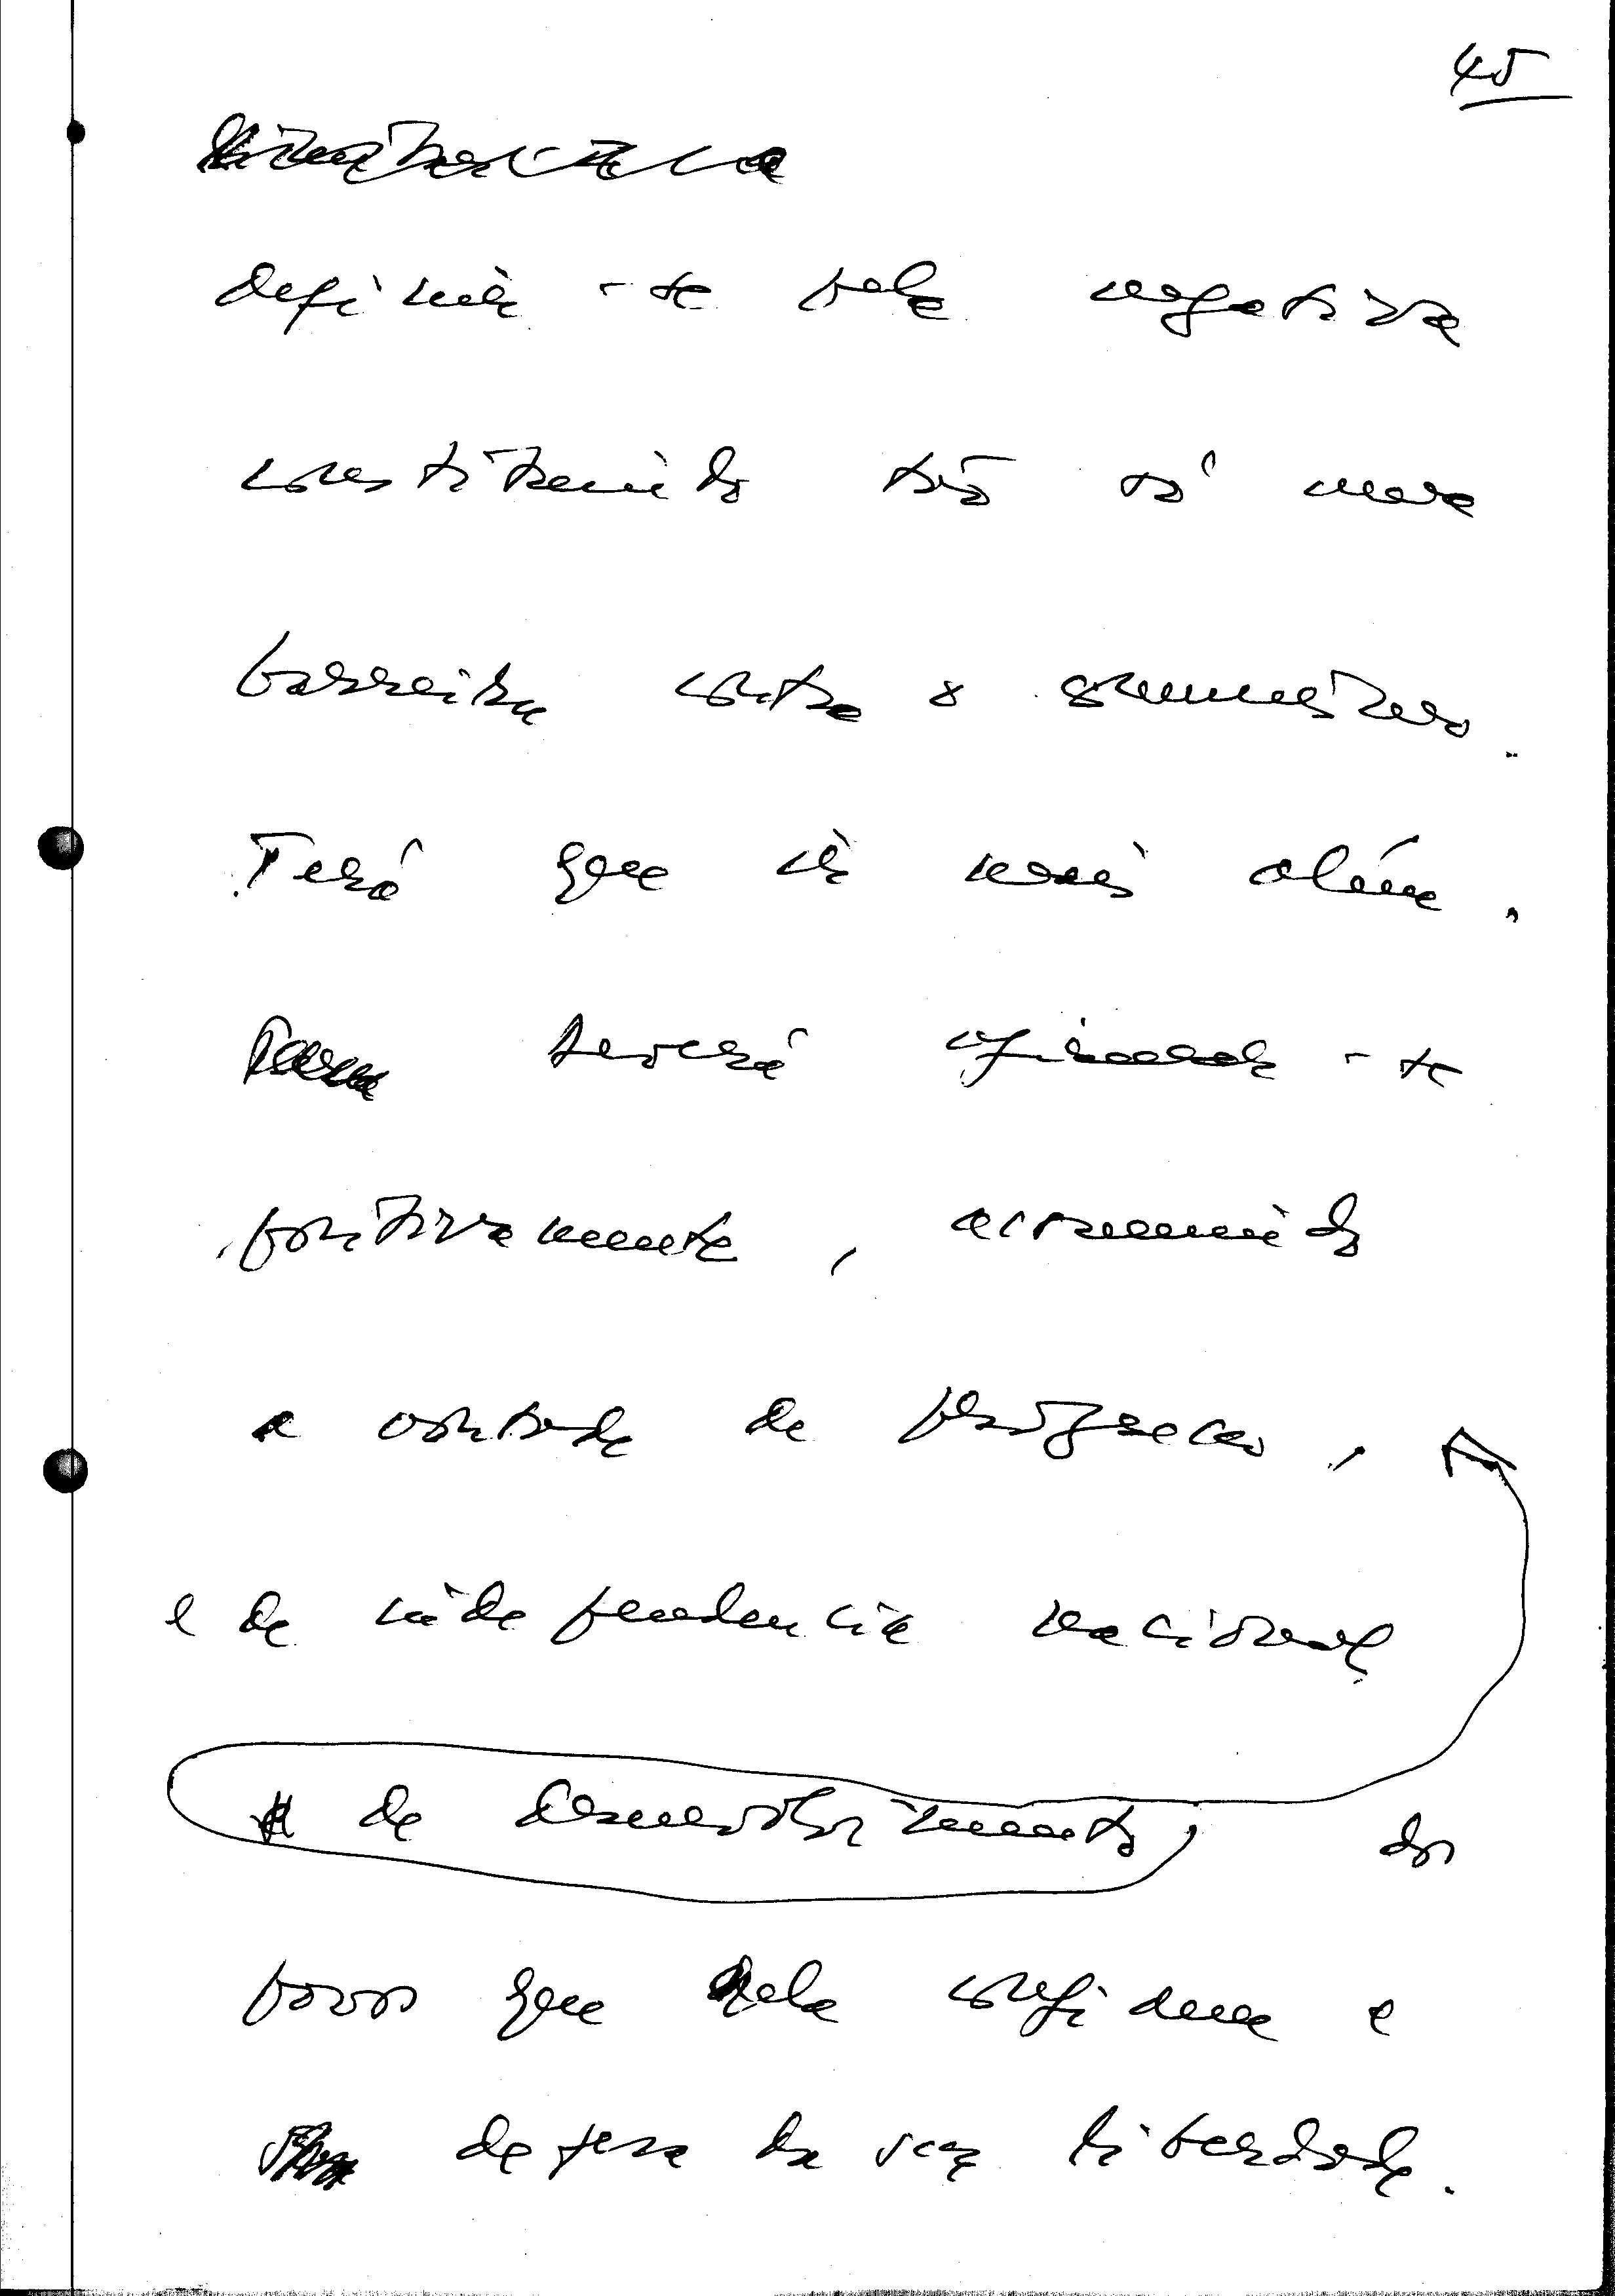 45
definir-se pela negativa
constituindo tão só uma
barreira contra o comunismo.
Terá que ir mais além.
deverá afirmar-se
positivamente, assumindo
a vontade de progresso,
e de independencia nacional
de desenvolvimento, dos
povos que nela confiam e
defesa da sua liberdade.